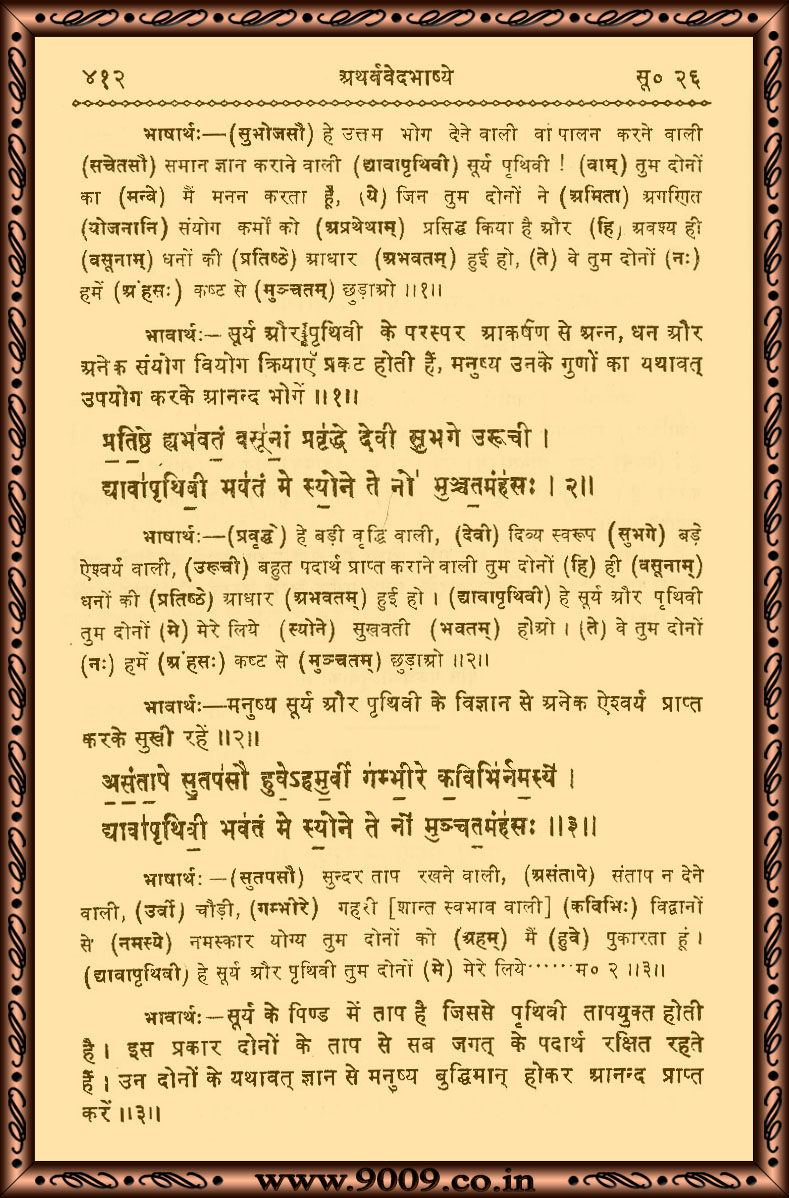 ४१२ अथर्ववेदभाष्ये सू० २६
भाषार्थः—(सुभोजसौ) हे उत्तम भोग देने वाली वा पालन करने वाली
(सचेतसौ) समान ज्ञान कराने वाली (द्यावापृथिवी) सूर्य पृथिवी ! (वाम्) तुम दोनों
का (मन्वे) मैं मनन करता हूँ, (ये) जिन तुम दोनों ने (अमिता) अगणित
(योजनानि) संयोग कर्मों को (अप्रथेथाम्) प्रसिद्ध किया है और (हि) अवश्य ही
(वसूनाम्) धनों की (प्रतिष्ठे) आधार (अभवतम्) हुई हो, (ते) वे तुम दोनों (नः)
हमें (अंहसः) कष्ट से (मुञ्चतम्) छुड़ाओ ॥१॥
भावार्थः—सूर्य और पृथिवी के परस्पर आकर्षण से अन्न, धन और
अनेक संयोग वियोग क्रियाएँ प्रकट होती हैं, मनुष्य उनके गुणों का यथावत्
उपयोग करके आनन्द भोगें ॥१॥
प्र॒ति॒ष्ठे ह्यभ॑वतं॒ वसू॑नां॒ प्रवृ॑द्धे देवी सुभगे उरूची ।
द्यावा॑पृथिवी॒ भव॑तं मे स्यो॒ने ते नो॑ मुञ्चत॒मंह॑सः । २॥
भाषार्थः—(प्रवृद्धे) हे बड़ी वृद्धि वाली, (देवी) दिव्य स्वरूप (सुभगे) बड़े
ऐश्वर्य वाली, (उरूची) बहुत पदार्थ प्राप्त कराने वाली तुम दोनों (हि) ही (वसूनाम्)
धनों की (प्रतिष्ठे) आधार (अभवतम्) हुई हो । (द्यावापृथिवी) हे सूर्य और पृथिवी
तुम दोनों (मे) मेरे लिये (स्योने) सुखवती (भवतम्) होओ । (ते) वे तुम दोनों
(नः) हमें (अंहसः) कष्ट से (मुञ्चतम्) छुड़ाओ ॥२॥
भावार्थः—मनुष्य सूर्य और पृथिवी के विज्ञान से अनेक ऐश्वर्य प्राप्त
करके सुखी रहें ॥२॥
अ॒सं॒ता॒पे सु॒तप॑सौ हुवे॒ऽहमु॒र्वी ग॑म्भी॒रे क॒विभि॑र्नम॒स्ये॑ ।
द्यावा॑पृथिवी॒ भव॑तं मे स्यो॒ने ते नो॑ मुञ्चत॒मंह॑सः ॥३॥
भाषार्थः—(सुतपसौ) सुन्दर ताप रखने वाली, (असंतापे) संताप न देने
वाली, (उर्वी) चौड़ी, (गम्भीरे) गहरी [शान्त स्वभाव वाली] (कविभिः) विद्वानों
से (नमस्ये) नमस्कार योग्य तुम दोनों को (अहम्) मैं (हुवे) पुकारता हूं ।
(द्यावापृथिवी) हे सूर्य और पृथिवी तुम दोनों (मे) मेरे लिये······म० २ ॥३॥
भावार्थः—सूर्य के पिण्ड में ताप है जिससे पृथिवी तापयुक्त होती
है । इस प्रकार दोनों के ताप से सब जगत् के पदार्थ रक्षित रहते
हैं । उन दोनों के यथावत् ज्ञान से मनुष्य बुद्धिमान् होकर आनन्द प्राप्त
करें ॥३॥
www.9009.co.in